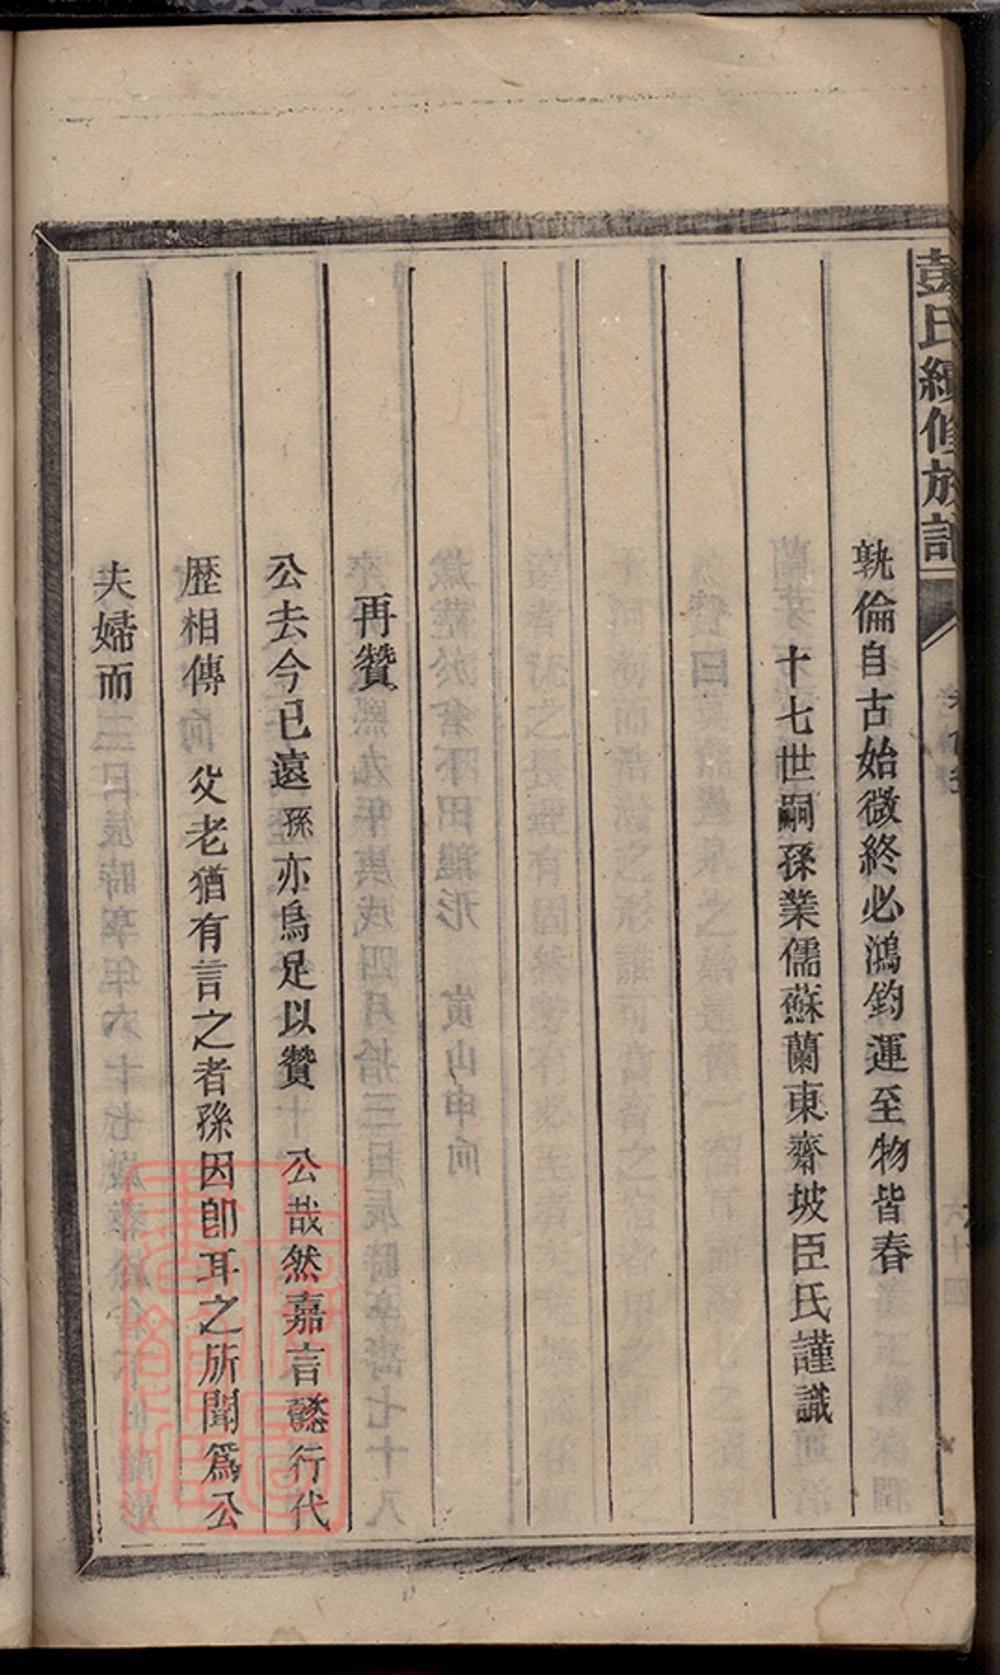 彭氏續修族譜
孰倫自古始微終必鴻鈞運至物皆春
十七世嗣孫業儒蘇蘭東齋坡臣氏謹識
再贊
公去今已遠孫亦烏足以贊 公哉然嘉言懿行代
歴相傳 父老猶有言之者孫因卽耳之所聞爲公
夫婦而